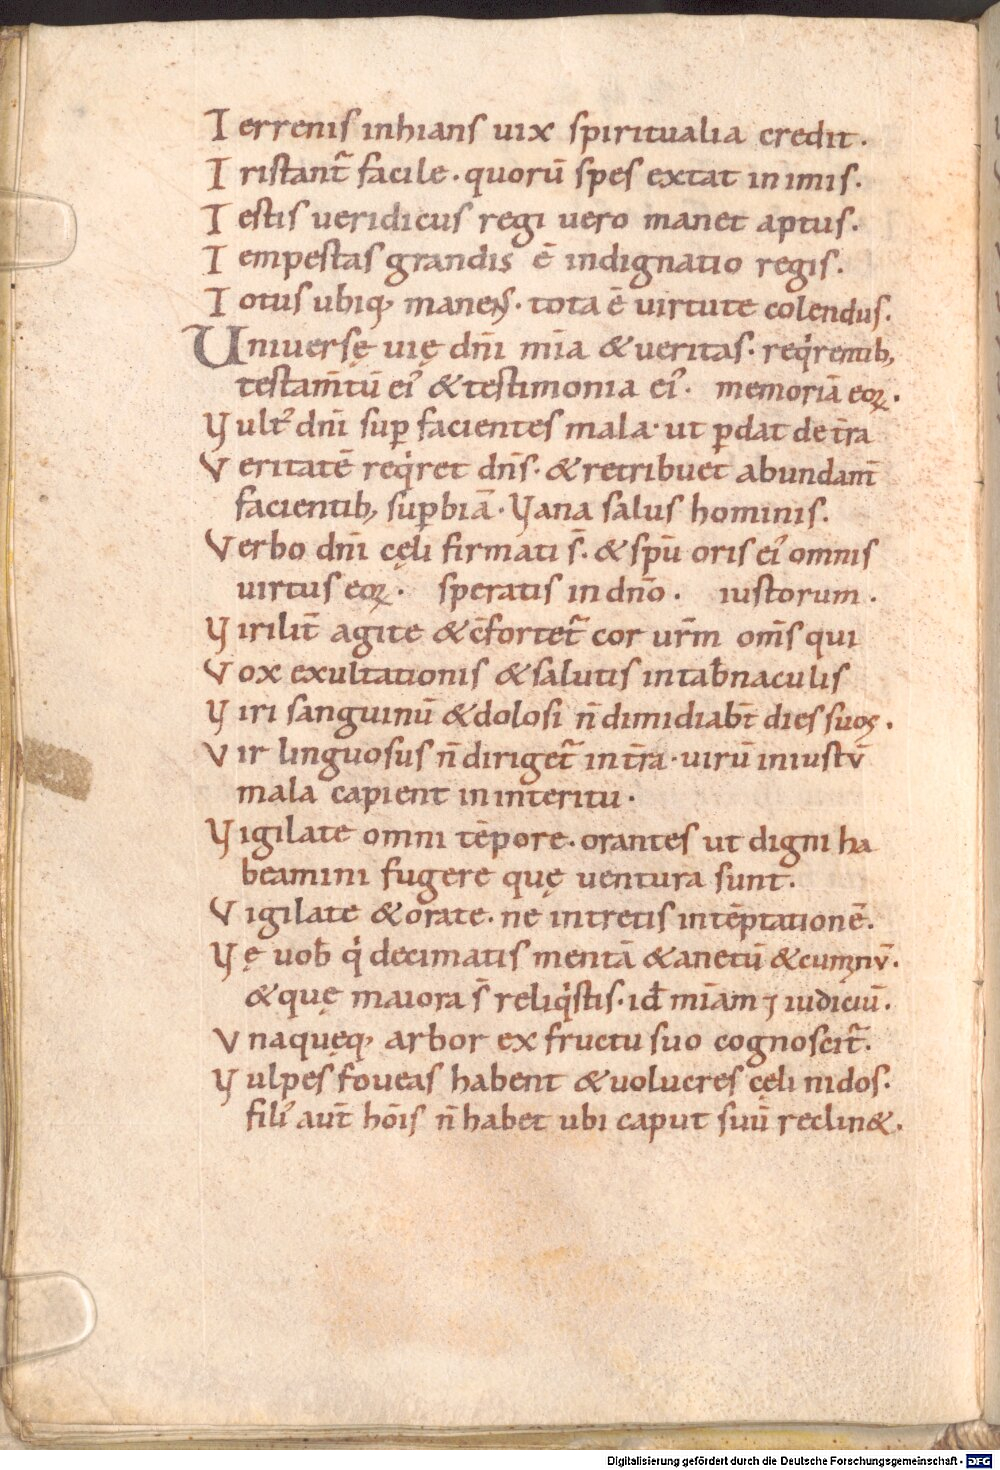 T errenis inhians uix spiritualia credit.
T ristant̃ facile. quorū spes extat in imis.
T estis ueridicus regi uero manet aptus.
T empestas grandis ē indignatio regis.
T otus ubiq; manens. tota ē uirtute colendus.
Uniuersę uię dn̄i mīa & ueritas. reqͥrentib;
testam̄tū ei᾿ & testimonia ei᾿. memoriā eoꝝ.
V ult᾿ dn̄i suꝑ facientes mala. ut ꝑdat de t̄ra
V eritatē reqͥret dn̄s. & retribuet abundant̄
facientib; suꝑbiā. Vana salus hominis.
Verbo dn̄i cęli firmati s̄. & sp̄u oris ei᾿ omnis
uirtus eoꝝ. speratis in dn̄o. iustorum.
V irilit̄ agite & c̄fortet̃ cor ur̄m om̄s qui
V ox exultationis & salutis in tab̄naculis
V iri sanguinū & dolosi n̄ dimidiab̄t dies suoꝝ.
V ir linguosus n̄ diriget̃ in t̄ra. uirū iniustv̄
mala capient in interitu.
Vigilate omni tēpore. orantes ut digni ha
beamini fugere quę uentura sunt.
V igilate & orate. ne intretis in tēptationē.
V ę uob̄ qͥ decimatis mentā & anetū & cumınv̄.
& quę maiora s̄ reliqͥstis. id̄ mīam ⁊ iudiciū.
V naquęq; arbor ex fructu suo cognoscit̃.
V ulpes foueas habent & uolucres cęli nidos.
fili᾿ aut̄ hōis n̄ habet ubi caput suū reclin&.
Digitalisierung gefördert durch die Deutsche Forschungsgemeinschaft - DFG